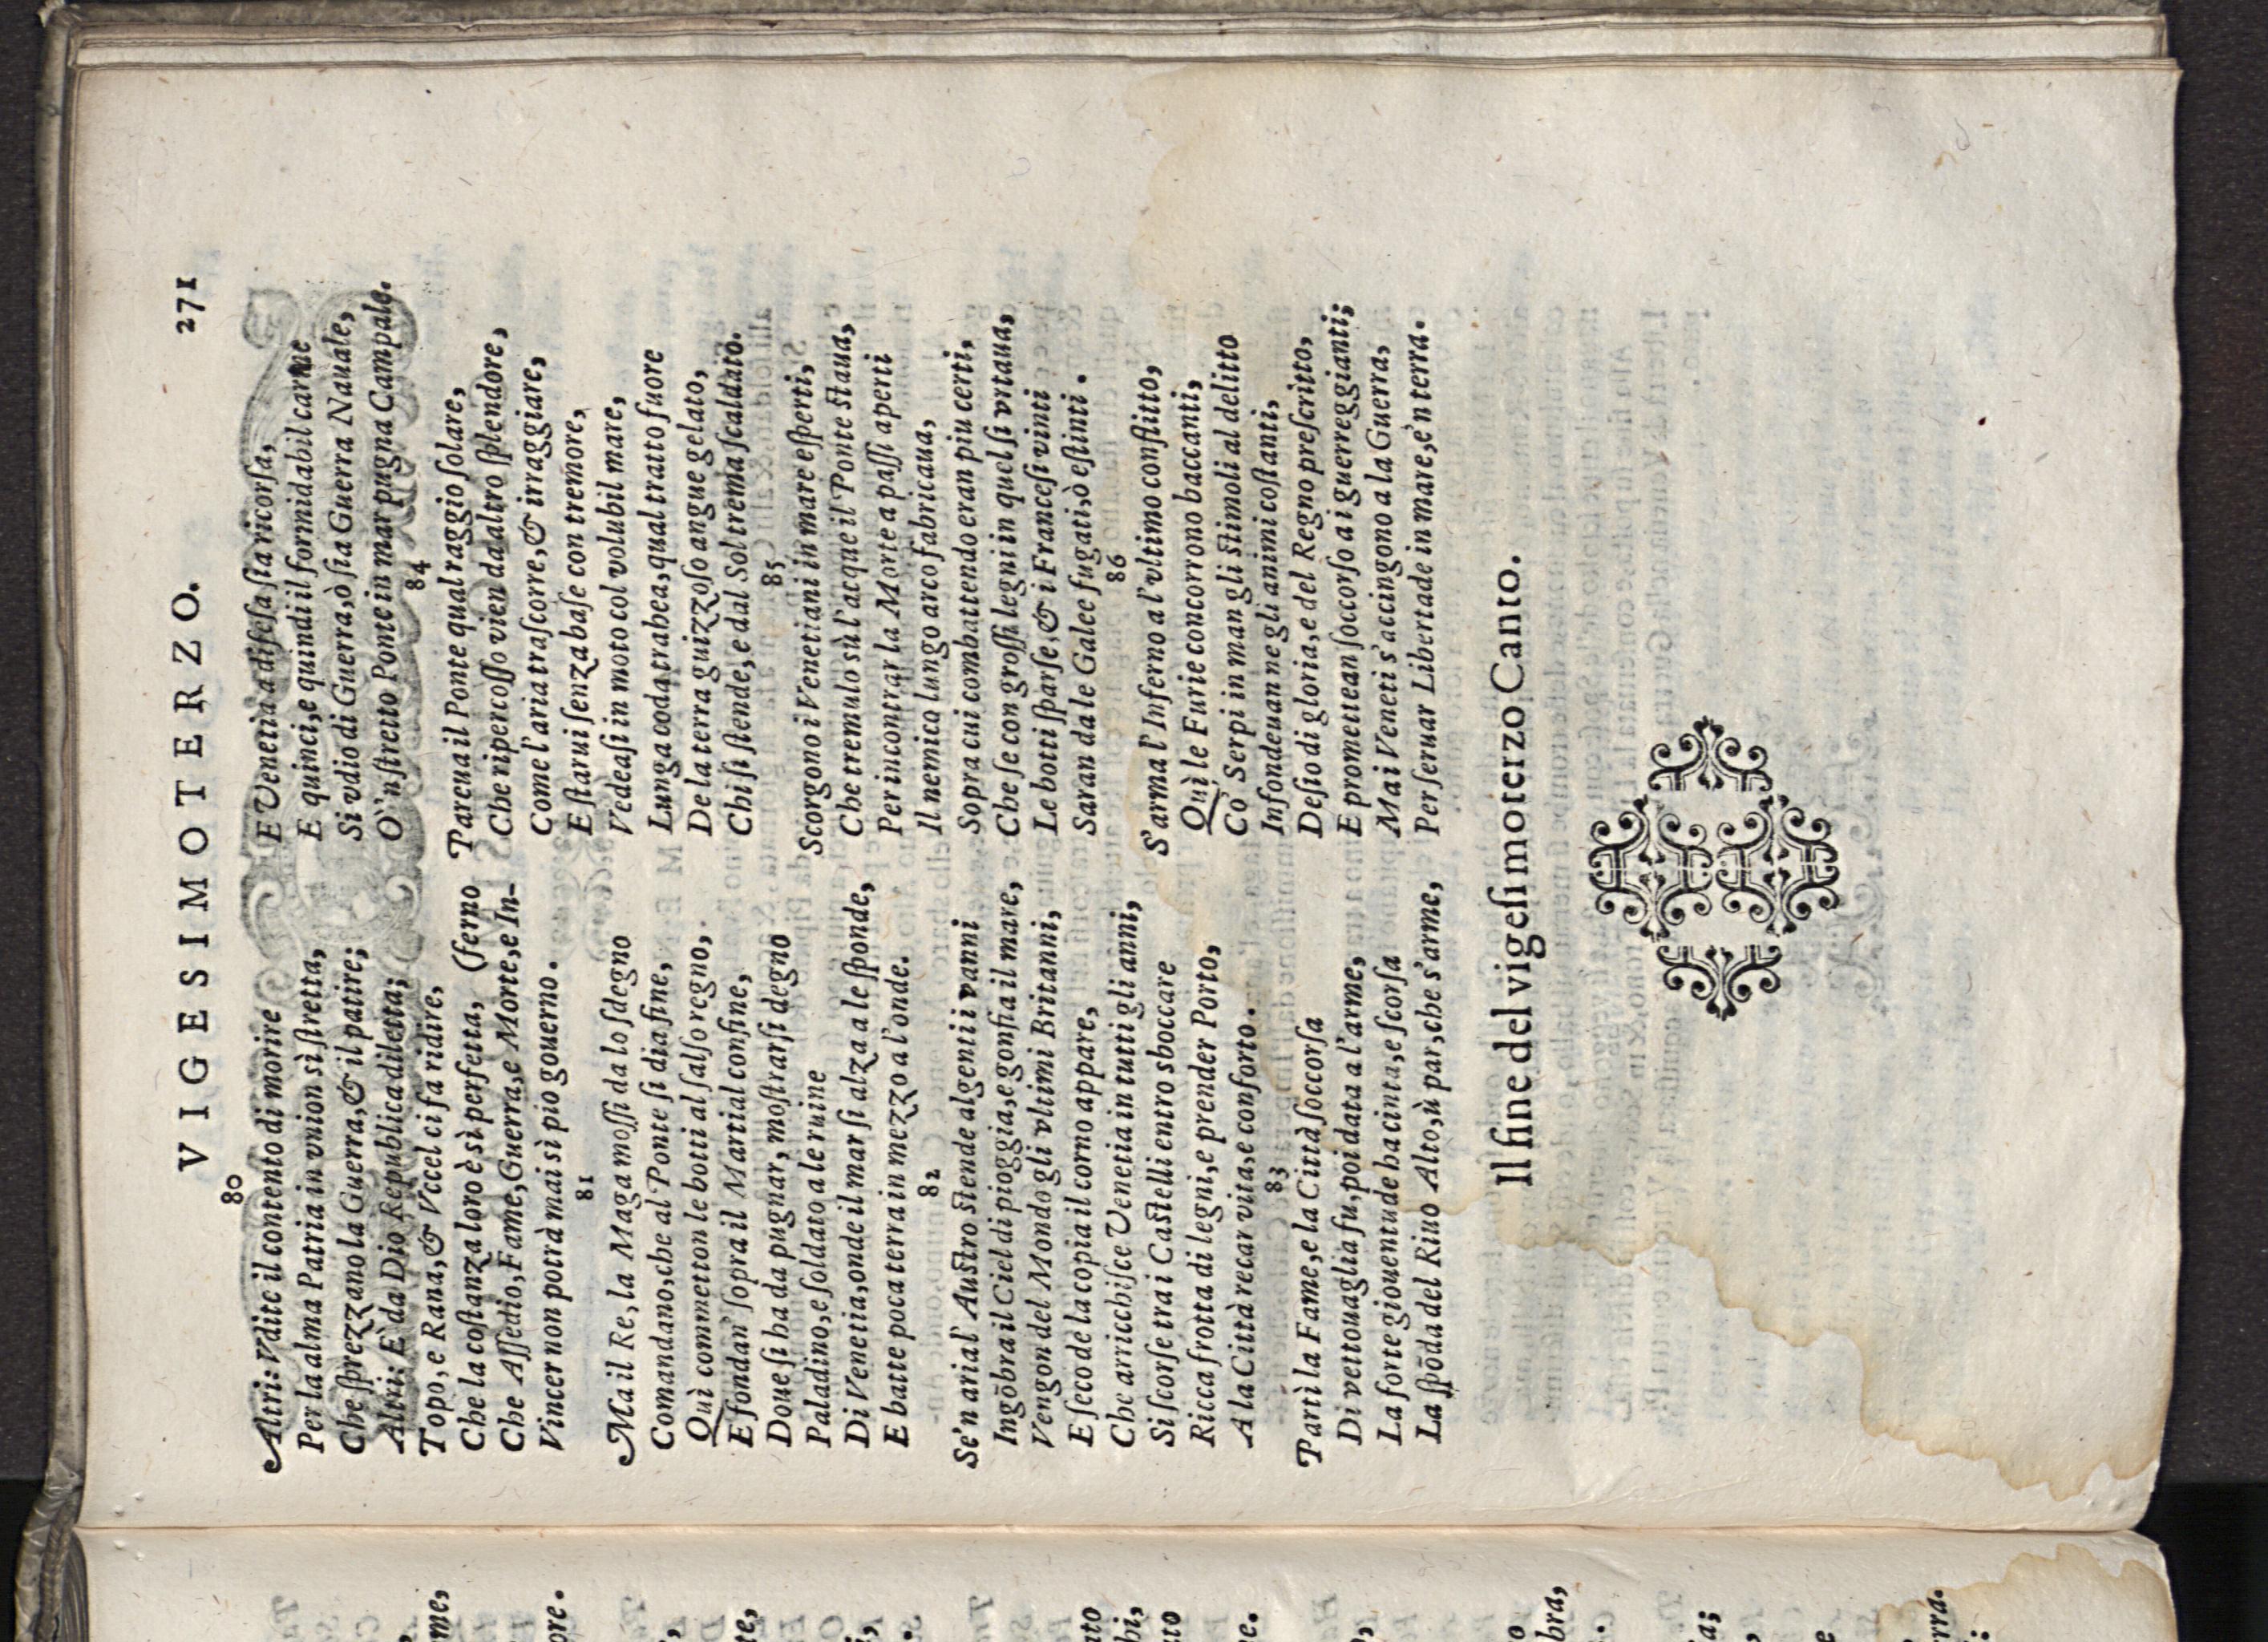 VIGESIMOTERZO. 271
80
Altri: Vdite il contento di morire
Per la alma Patria in vnion sì ſtretta,
Che ſprezzano la Guerra, & il patire;
Altri: E' da Dio Republica diletta;
Topo, e Rana, & Vccel ci fa ridire,
Che la coſtanza loro è sì perfetta, (ferno
Che Aſſedio, Fame, Guerra, e Morte, e In-
Vincer non potrà mai sì pio gouerno.
81
Ma il Re, la Maga moſſi da lo ſdegno
Comandano, che al Ponte ſi dia fine,
Quì commetton le botti al ſalſo regno,
E fondan' ſopra il Martial confine,
Doue ſi ha da pugnar, moſtrarſi degno
Paladino, e ſoldato a le ruine
Di Venetia, onde il mar ſi alza a le ſponde,
E batte poca terra in mezzo a l'onde.
82
Se'n aria l'Auſtro ſtende algenti i vanni
Ingōbra il Ciel di pioggia, e gonfia il mare,
Vengon del Mondo gli vltimi Britanni,
E ſeco de la copia il corno appare,
Che arricchiſce Venetia in tutti gli anni,
Si ſcorſe tra i Caſtelli entro sboccare
Ricca frotta di legni, e prender Porto,
A la Città recar vita, e conforto.
83
Partì la Fame, e la Città ſoccorſa
Di vettouaglia fu, poi data a l'arme,
La forte giouentude ha cinta, e ſcorſa
La ſpōda del Riuo Alto, ù par, che s'arme,
E Venetia a difeſa ſia ricorſa,
E quinci, e quindi il formidabil carme
Si vdio di Guerra, ò ſia Guerra Nauale,
O'n ſtretto Ponte in mar pugna Campale.
84
Pareua il Ponte qual raggio ſolare,
Che ripercoſſo vien da altro ſplendore,
Come l'aria traſcorre, & irraggiare,
E ſtarui ſenza baſe con tremore,
Vedeaſi in moto col volubil mare,
Lunga ooda trabea, qual tratto fuore
De la terra guizzoſo angue gelato,
Chi ſi ſtende, e dal Sol trema ſcaldato.
85
Scorgono i Venetiani in mare eſperti,
Che tremulo sù l'acque il Ponte ſtaua,
Per incontrar la Morte a paſſi aperti
Il nemico lungo arco fabricaua,
Sopra cui combattendo eran piu certi,
Che ſe con groſſi legni in quel ſi vrtaua,
Le botti ſparſe, & i Franceſi vinti
Saran da le Galee fugati, ò eſtinti.
86
S'arma l'Inferno a l'vltimo conflitto,
Quì le Furie concorrono baccanti,
Co' Serpi in man gli ſtimoli al delitto
Infondeuan ne gli animi coſtanti,
Deſio di gloria, e del Regno preſcritto,
E promettean ſoccorſo a i guerreggianti;
Ma i Veneti s'accingono a la Guerra,
Per ſeruar Libertade in mare, e'n terra.
Il fine del vigeſimoterzo Canto.